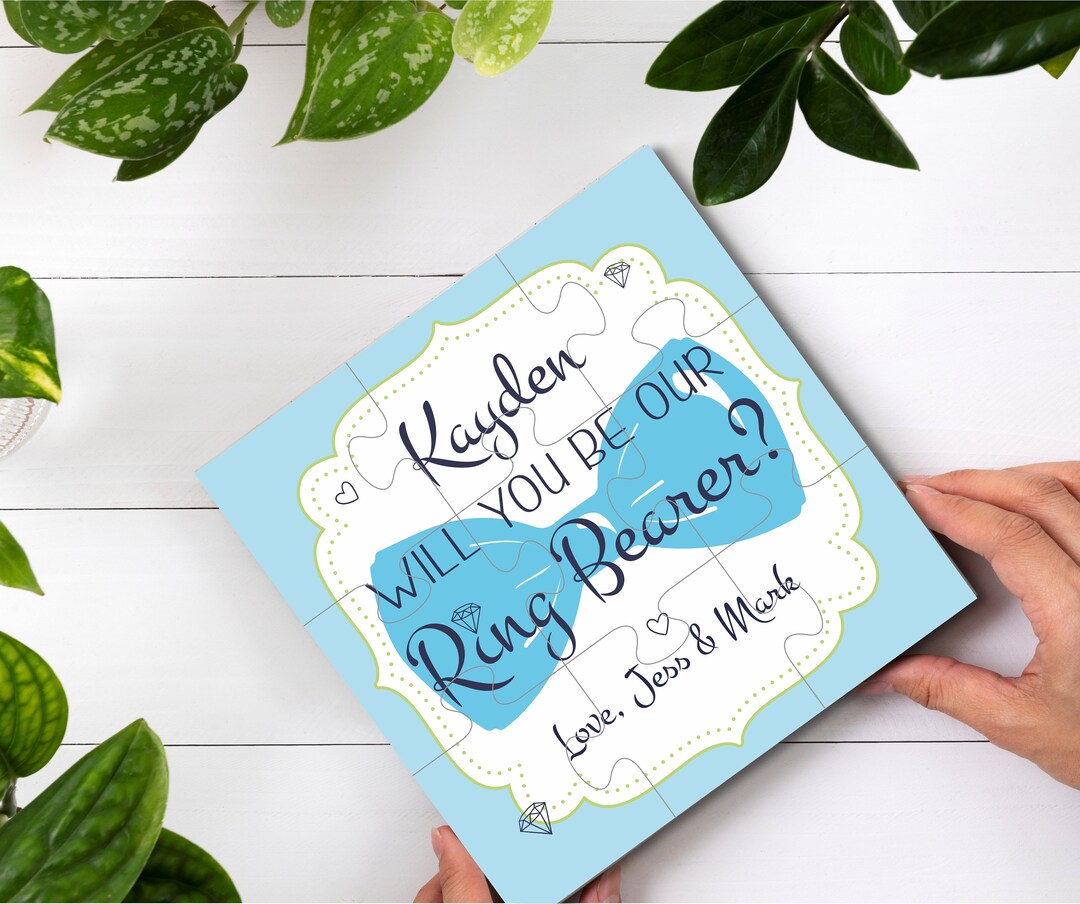 Kayden
WILL YOU BE OUR
Ring Bearer?
Love, Jess & Mark